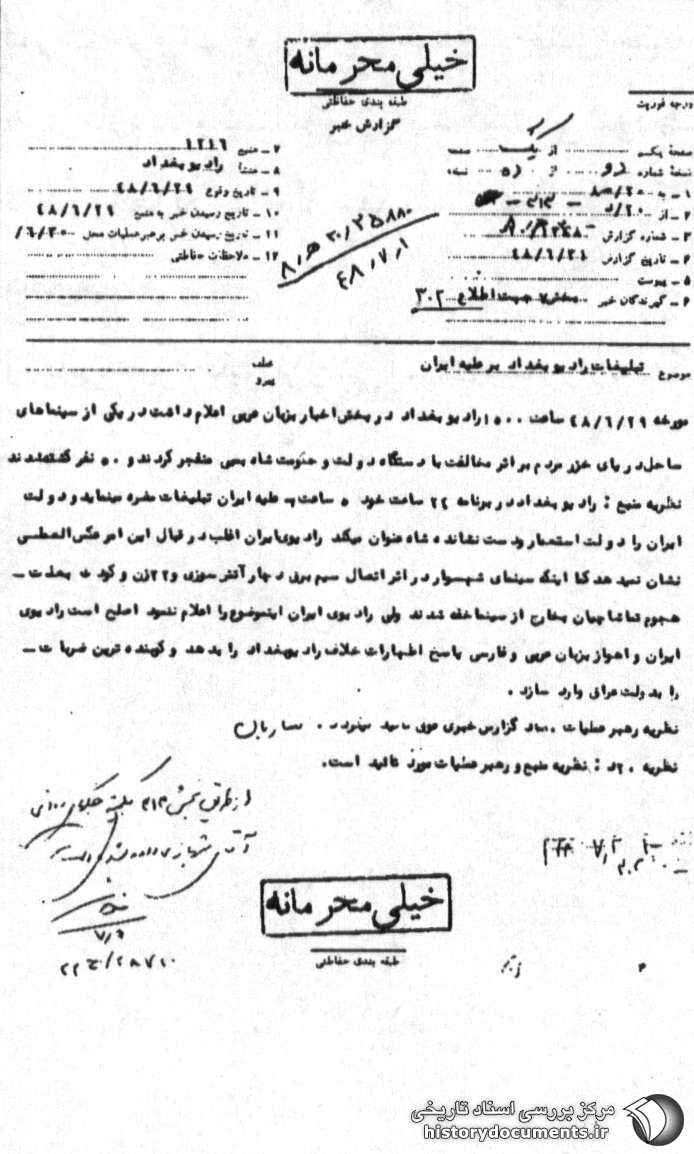 خیلی محرمانه
طبقه بندی حفاظتی
گزارش خبر
درجه فوریت
صفحه یکم از یک صفحه
نسخه شماره دو از نسخه
۱ – به
۲ – از ۲۰/د
۳ – شماره گزارش
۴ – تاریخ گزارش
۵ – پیوست
۶ – گیرندگان خبر بخش ۷ جهت اطلاع ۳۰۲
۷ – منبع ۱۲۱۶
۸ – منشأ رادیو بغداد
۹ – تاریخ وقوع ۴۸/۶/۲۹
۱۰ – تاریخ رسیدن خبر به منبع ۴۸/۶/۲۹
۱۱ – تاریخ رسیدن خبر بر رهبر عملیات محل ۶/۳۰/
۱۲ – ملاحظات حفاظتی
۴۸،۷،۱
موضوع تبلیغات رادیو بغداد بر علیه ایران
عطف
پیرو
مورخه ۴۸/۶/۲۹ ساعت ۱۵۰۰ رادیو بغداد در بخش اخبار بزبان عربی اعلام داشت در یکی از سینماهای
ساحل دریای خزر مردم بر اثر مخالفت با دستگاه دولت و حکومت شاه بمبی منفجر کردند و ۵۰ نفر کشته شدند
نظریه منبع : رادیو بغداد در برنامه ۲۴ ساعت خود ۵ ساعت به علیه ایران تبلیغات مضره مینماید و دولت
ایران را دولت استعمار و دست نشانده شاه عنوان میکند رادیوی ایران اغلب در قبال این امر عکس العملی
نشان نمیدهد کما اینکه سینمای شهسوار در اثر اتصال سیم برق دچار آتش سوزی و ۲۲ زن و کودک بعلت –
هجوم تماشاچیان بخارج از سینما خفه شدند ولی رادیوی ایران اینموضوع را اعلام ننمود اصلح است رادیوی
ایران و اهواز بزبان عربی و فارسی پاسخ اظهارات خلاف رادیو بغداد را بدهد و کوبنده ترین ضربات –
را بدولت عراق وارد سازد .
نظریه رهبر عملیات . مفاد گزارش خبری فوق تائید میگردد .
نظریه ۲۰د : نظریه منبع و رهبر عملیات مورد تائید است.
خیلی محرمانه
طبقه بندی حفاظتی
مرکز بررسی اسناد تاریخی
historydocuments.ir